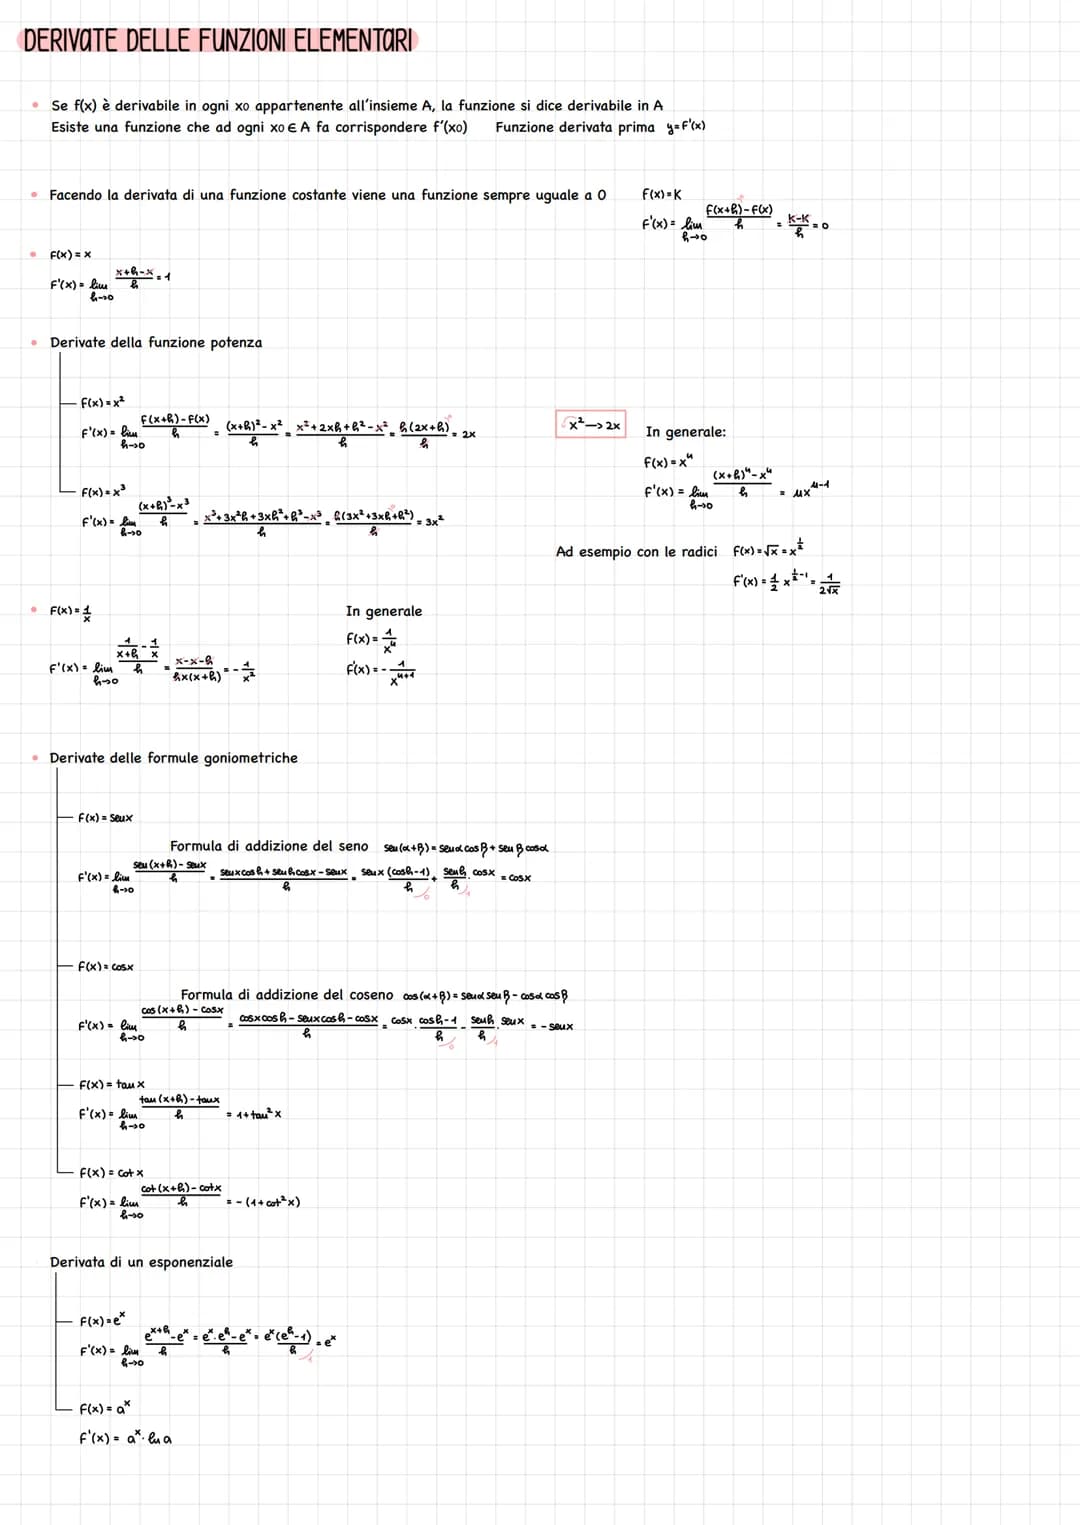 DERIVATE DELLE FUNZIONI ELEMENTARI
Se f(x) è derivabile in ogni xo appartenente all'insieme A, la funzione si dice derivabile in A
Esiste una funzione che ad ogni xo ∈ A fa corrispondere f'(xo) Funzione derivata prima y=F'(x)
Facendo la derivata di una funzione costante viene una funzione sempre uguale a 0 F(x)=K
F'(x) = lim h→0 (F(x+h)-F(x))/h = (K-K)/h = 0
F(x) = x
F'(x) = lim h→0 (x+h-x)/h = 1
Derivate della funzione potenza
F(x) = x²
F'(x) = lim h→0 (F(x+h)-F(x))/h = ((x+h)²-x²)/h = (x²+2xh+h²-x²)/h = h(2x+h)/h = 2x
x² → 2x
In generale:
F(x) = xⁿ
F'(x) = lim h→0 ((x+h)ⁿ-xⁿ)/h = nxⁿ⁻¹
F(x) = x³
F'(x) = lim h→0 ((x+h)³-x³)/h = (x³+3x²h+3xh²+h³-x³)/h = h(3x²+3xh+h²)/h = 3x²
Ad esempio con le radici F(x)=√x = x^(1/2)
F'(x) = 1/2 x^(1/2-1) = 1/(2√x)
F(x) = 1/x
F'(x) = lim h→0 (1/(x+h) - 1/x)/h = (x-x-h)/(hx(x+h)) = -1/x²
In generale
F(x) = 1/xⁿ
F'(x) = - 1/xⁿ⁺¹
Derivate delle formule goniometriche
F(x) = senx
Formula di addizione del seno sen(α+β) = senα cosβ + senβ cosα
F'(x) = lim h→0 (sen(x+h)-senx)/h = (senx cosh + senh cosx - senx)/h = senx (cosh-1)/h + senh/h · cosx = cosx
0 1
F(x) = cosx
Formula di addizione del coseno cos(α+β) = senα senβ - cosα cosβ
F'(x) = lim h→0 (cos(x+h)-cosx)/h = (cosx cosh - senx cosh - cosx)/h = cosx · (cosh-1)/h - senh/h · senx = -senx
0 1
F(x) = tanx
F'(x) = lim h→0 (tan(x+h)-tanx)/h = 1+tan²x
F(x) = cotx
F'(x) = lim h→0 (cot(x+h)-cotx)/h = -(1+cot²x)
Derivata di un esponenziale
F(x) = eˣ
F'(x) = lim h→0 (eˣ⁺ʰ-eˣ)/h = (eˣ·eʰ-eˣ)/h = eˣ(eʰ-1)/h = eˣ
1
F(x) = aˣ
F'(x) = aˣ · ln a